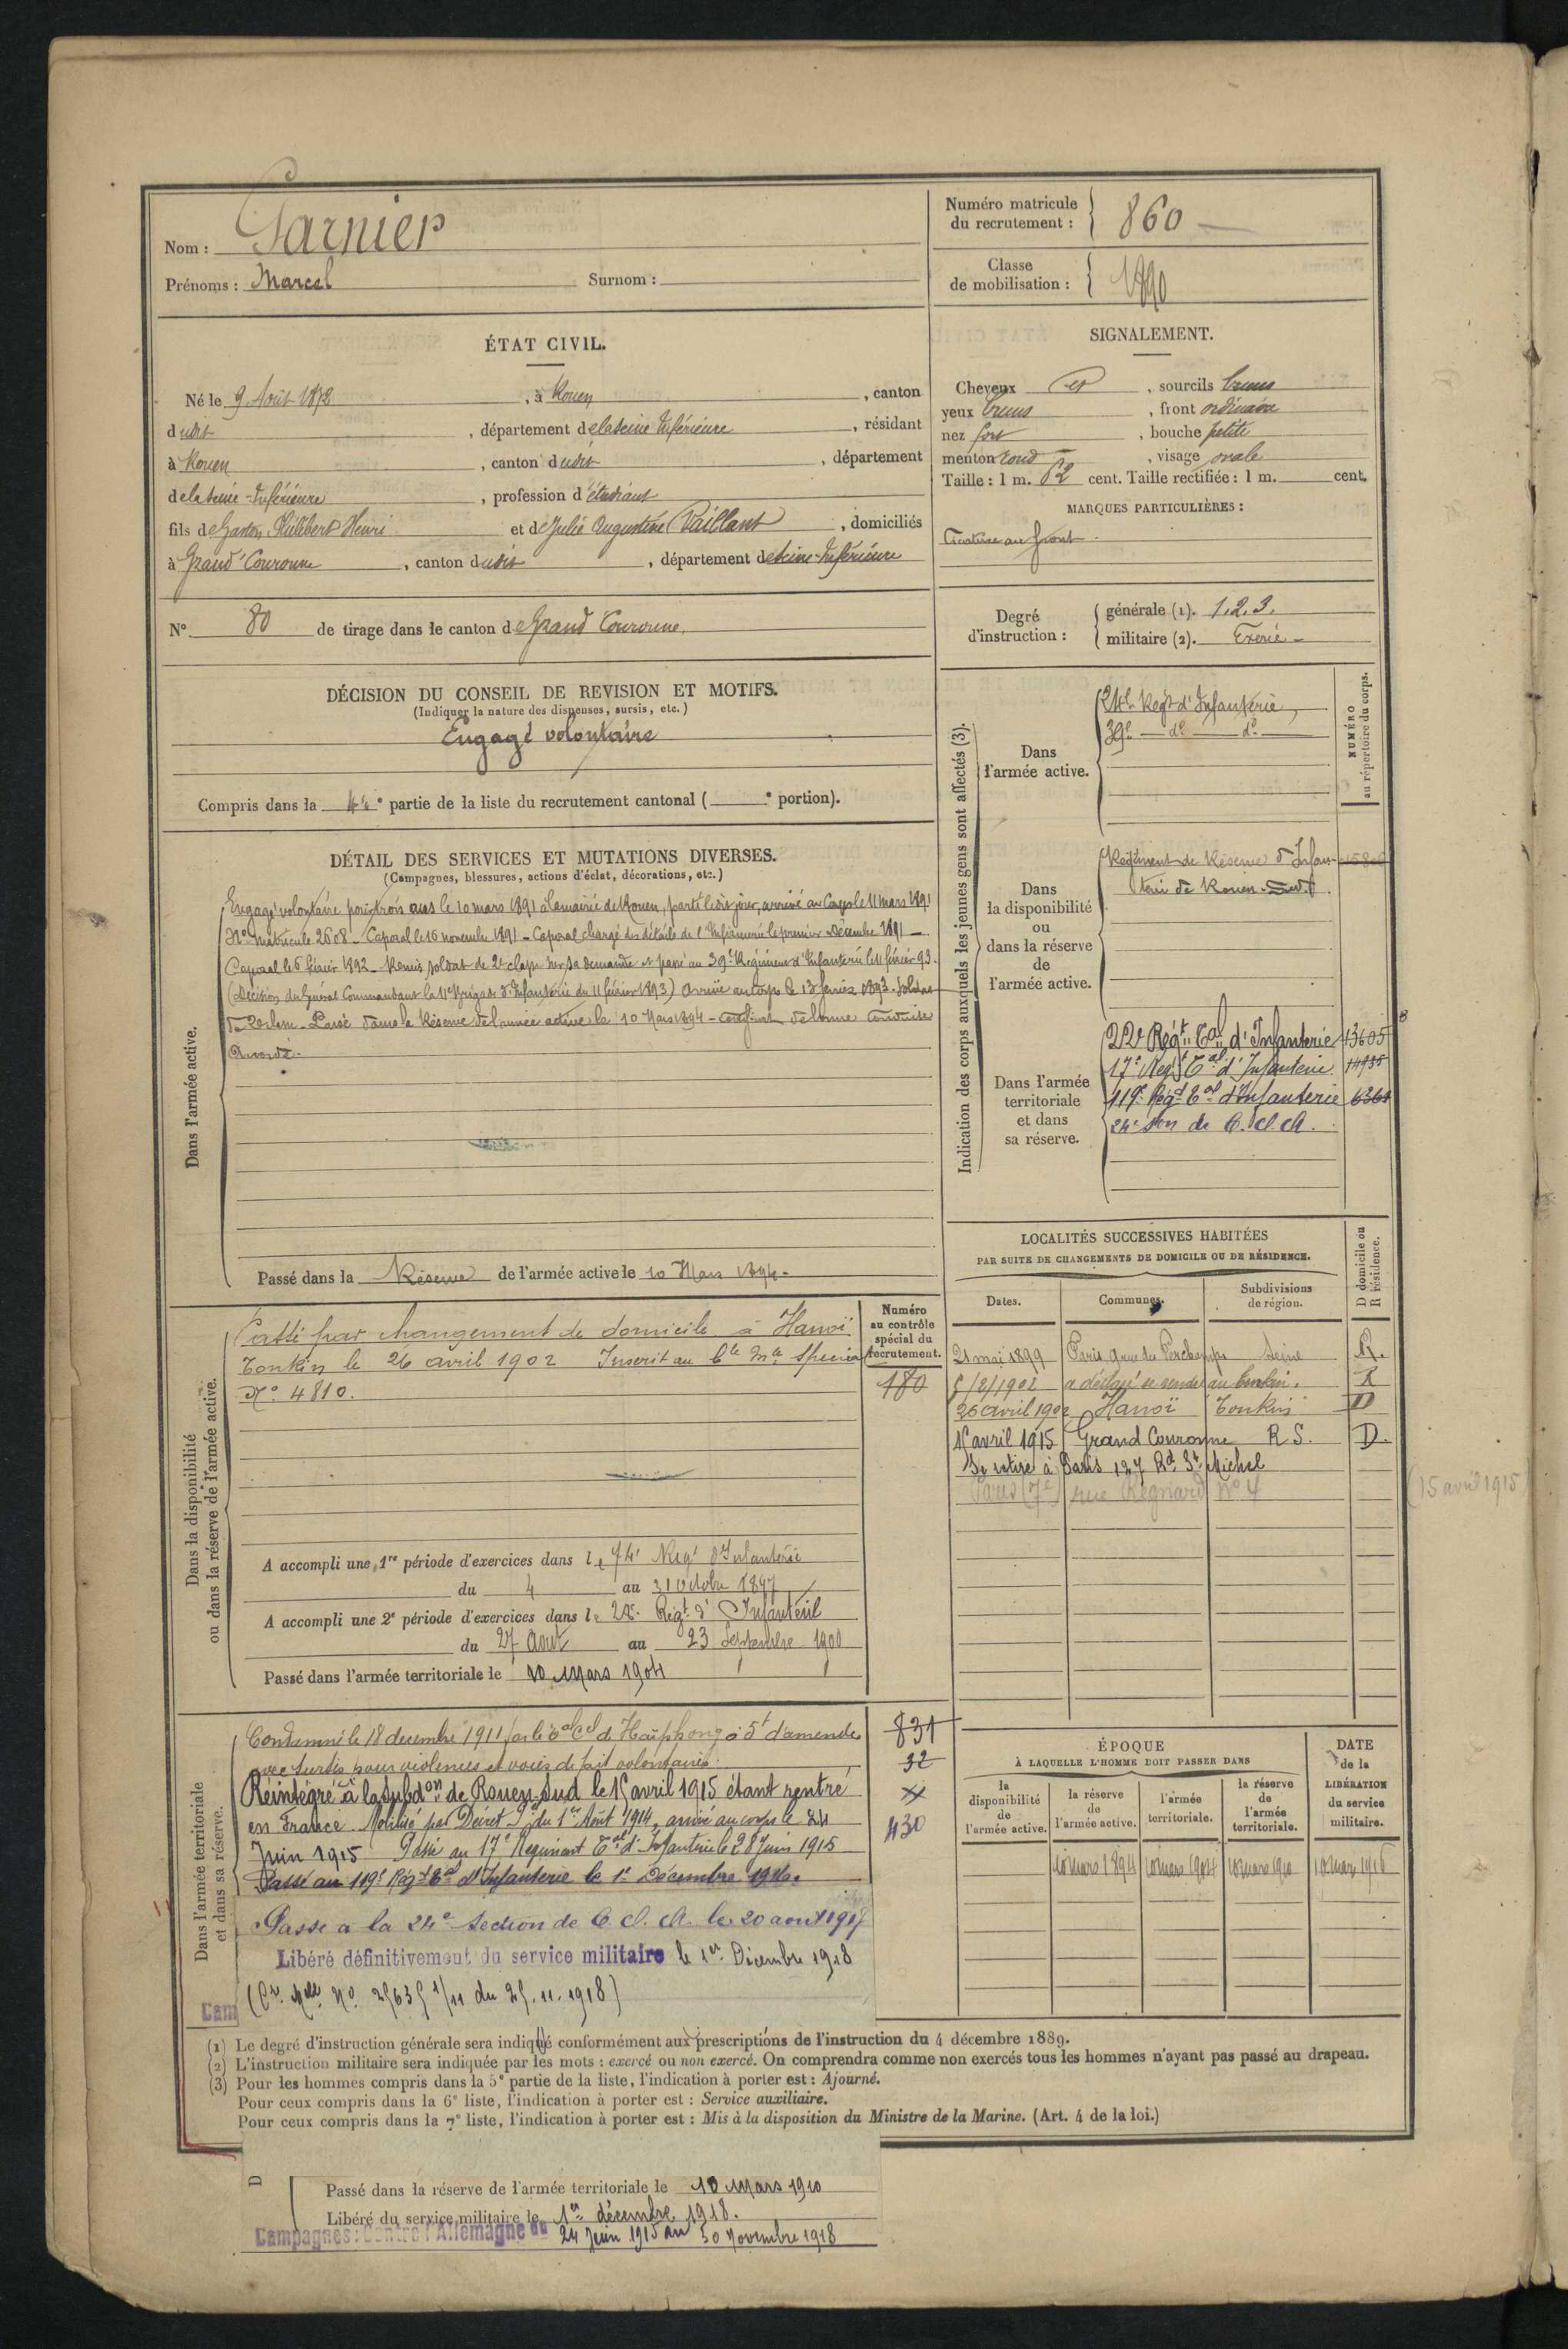 Nom : Garnier
Prénoms : Marcel Surnom :
Numéro matricule du recrutement : 860
Classe de mobilisation : 1890
ÉTAT CIVIL.
Né le 9 Août 1872, à Rouen, canton
dudit, département de la Seine Inférieure, résidant
à Rouen, canton dudit, département
de la Seine-Inférieure, profession d'étudiant
fils de Gaston Philibert Henri et de Julie Augustine Vaillant, domiciliés
à Grand'Couronne, canton dudit, département de Seine-Inférieure
N° 80 de tirage dans le canton de Grand Couronne
SIGNALEMENT.
Cheveux et, sourcils bruns
yeux bruns, front ordinaire
nez fort, bouche petite
menton rond, visage ovale
Taille : 1 m. 62 cent. Taille rectifiée : 1 m. cent.
MARQUES PARTICULIÈRES :
Cicatrice au front.
Degré d'instruction : générale (1). 1.2.3.
militaire (2). Exercé
DÉCISION DU CONSEIL DE REVISION ET MOTIFS.
(Indiquer la nature des dispenses, sursis, etc.)
Engagé volontaire
Compris dans la 4e partie de la liste du recrutement cantonal ( e portion).
DÉTAIL DES SERVICES ET MUTATIONS DIVERSES.
(Campagnes, blessures, actions d'éclat, décorations, etc.)
Dans l'armée active.
Engagé volontaire pour trois ans le 10 mars 1891 à la mairie de Rouen, parti ledit jour, arrivé au Corps le 11 mars 1891
N° matricule 2608 - Caporal le 16 novembre 1891 - Caporal chargé des détails de l'Infirmerie le premier Décembre 1891 -
Caporal le 6 février 1892 - Remis soldat de 2e classe sur sa demande et passé au 39e Régiment d'Infanterie le 11 février 93.
(Décision du Général Commandant la 11e Brigade d'Infanterie du 11 février 1893) Arrivé au corps le 13 février 1893 - Soldat
de 2e classe - Passé dans la Réserve de l'armée active le 10 Mars 1894 - Certificat de bonne conduite
Accordé.
Passé dans la Réserve de l'armée active le 10 Mars 1894.
Indication des corps auxquels les jeunes gens sont affectés (3).
NUMÉRO au répertoire du corps.
Dans l'armée active.
24e Regt d'Infanterie
39e do do
Dans la disponibilité ou dans la réserve de l'armée active.
Régiment de Réserve d'Infan-
terie de Rouen-Sud.
Dans l'armée territoriale et dans sa réserve.
22e Régt Tal d'Infanterie 13605
17e Régt Tal d'Infanterie 14935
119e Régt Tal d'Infanterie 6361
24e Son de C.O.A.
Dans la disponibilité ou dans la réserve de l'armée active.
Numéro au contrôle spécial du recrutement.
Passé par changement de domicile à Hanoï
Tonkin le 26 avril 1902 Inscrit au Cle Mle Spécial
N° 4810.
180
A accompli une 1re période d'exercices dans le 74e Régt d'Infanterie
du 4 au 31 Octobre 1897
A accompli une 2e période d'exercices dans le 28e Régt d'Infanterie
du 27 Août au 23 Septembre 1900
Passé dans l'armée territoriale le 10 Mars 1904
LOCALITÉS SUCCESSIVES HABITÉES
PAR SUITE DE CHANGEMENTS DE DOMICILE OU DE RÉSIDENCE.
Dates. Communes. Subdivisions de région. D domicile ou R résidence.
21 mai 1899 Paris Seine R.
5/2/1902 a déclaré se rendre au Tonkin. R
26 avril 1902 Hanoï Tonkin D
15 avril 1915 Grand Couronne R S. D.
Se retire à Paris 127 Bd St Michel
Paris rue Regnard N° 4
(15 avril 1915)
Dans l'armée territoriale et dans sa réserve.
Condamné le 18 décembre 1911 par le Tal Cel de Haïphong à 5f d'amende
avec sursis pour violences et voies de fait volontaires.
Réintégré à la Subdon de Rouen Sud le 15 avril 1915 étant rentré
en France. Mobilisé par Décret Pel du 1er Août 1914, arrivé au corps le 24
Juin 1915 Passé au 17e Régiment Tal d'Infanterie le 28 Juin 1915
Passé au 119e Régt Tal d'Infanterie le 1er Décembre 1916.
Passé à la 24e Section de C.O.A. le 20 août 1917
Libéré définitivement du service militaire le 1er Décembre 1918
(Cre Mlle N° 25635 1/11 du 25.11.1918)
Cam
831
32
430
ÉPOQUE
À LAQUELLE L'HOMME DOIT PASSER DANS
la disponibilité de l'armée active. la réserve de l'armée active. l'armée territoriale. la réserve de l'armée territoriale.
DATE de la LIBÉRATION du service militaire.
10 mars 1894 10 mars 1904 10 mars 1910 10 mars 1916
(1) Le degré d'instruction générale sera indiqué conformément aux prescriptions de l'instruction du 4 décembre 1889.
(2) L'instruction militaire sera indiquée par les mots : exercé ou non exercé. On comprendra comme non exercés tous les hommes n'ayant pas passé au drapeau.
(3) Pour les hommes compris dans la 5e partie de la liste, l'indication à porter est : Ajourné.
Pour ceux compris dans la 6e liste, l'indication à porter est : Service auxiliaire.
Pour ceux compris dans la 7e liste, l'indication à porter est : Mis à la disposition du Ministre de la Marine. (Art. 4 de la loi.)
D
Passé dans la réserve de l'armée territoriale le 10 Mars 1910
Libéré du service militaire le 1er décembre 1918.
Campagnes : Contre l'Allemagne du 24 Juin 1915 au 30 Novembre 1918